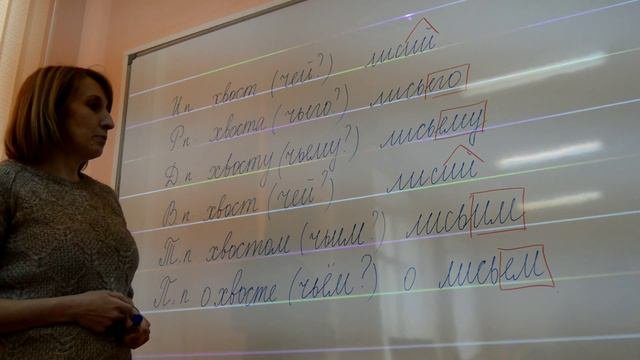 И.п хвост (чей?) лисий
Р.п хвоста (чьего?) лисьего
Д.п хвосту (чьему?) лисьему
В.п хвост (чей?) лисий
Т.п хвостом (чьим?) лисьим
П.п о хвосте (чьём?) о лисьем